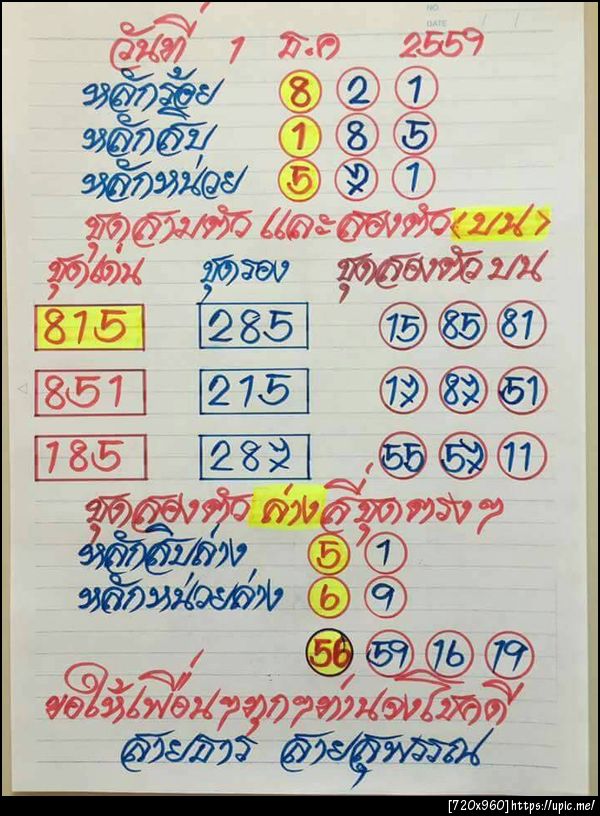 NO
DATE / /
วันที่ 1 ธ.ค 2559
หลักร้อย 8 2 1
หลักสิบ 1 8 5
หลักหน่วย 5 7 1
ชุดสามตัว และสองตัว (บน)
ชุดเด่น ชุดรอง ชุดสองตัว บน
815 285 15 85 81
851 215 17 87 51
185 287 55 57 11
ชุดสองตัว ล่าง สี่ชุดตรงๆ
หลักสิบล่าง 5 1
หลักหน่วยล่าง 6 9
56 59 16 19
ขอให้เพื่อนๆทุกๆท่านจงโชคดี
สายธาร สายสุพรรณ
[720x960]https://upic.me/